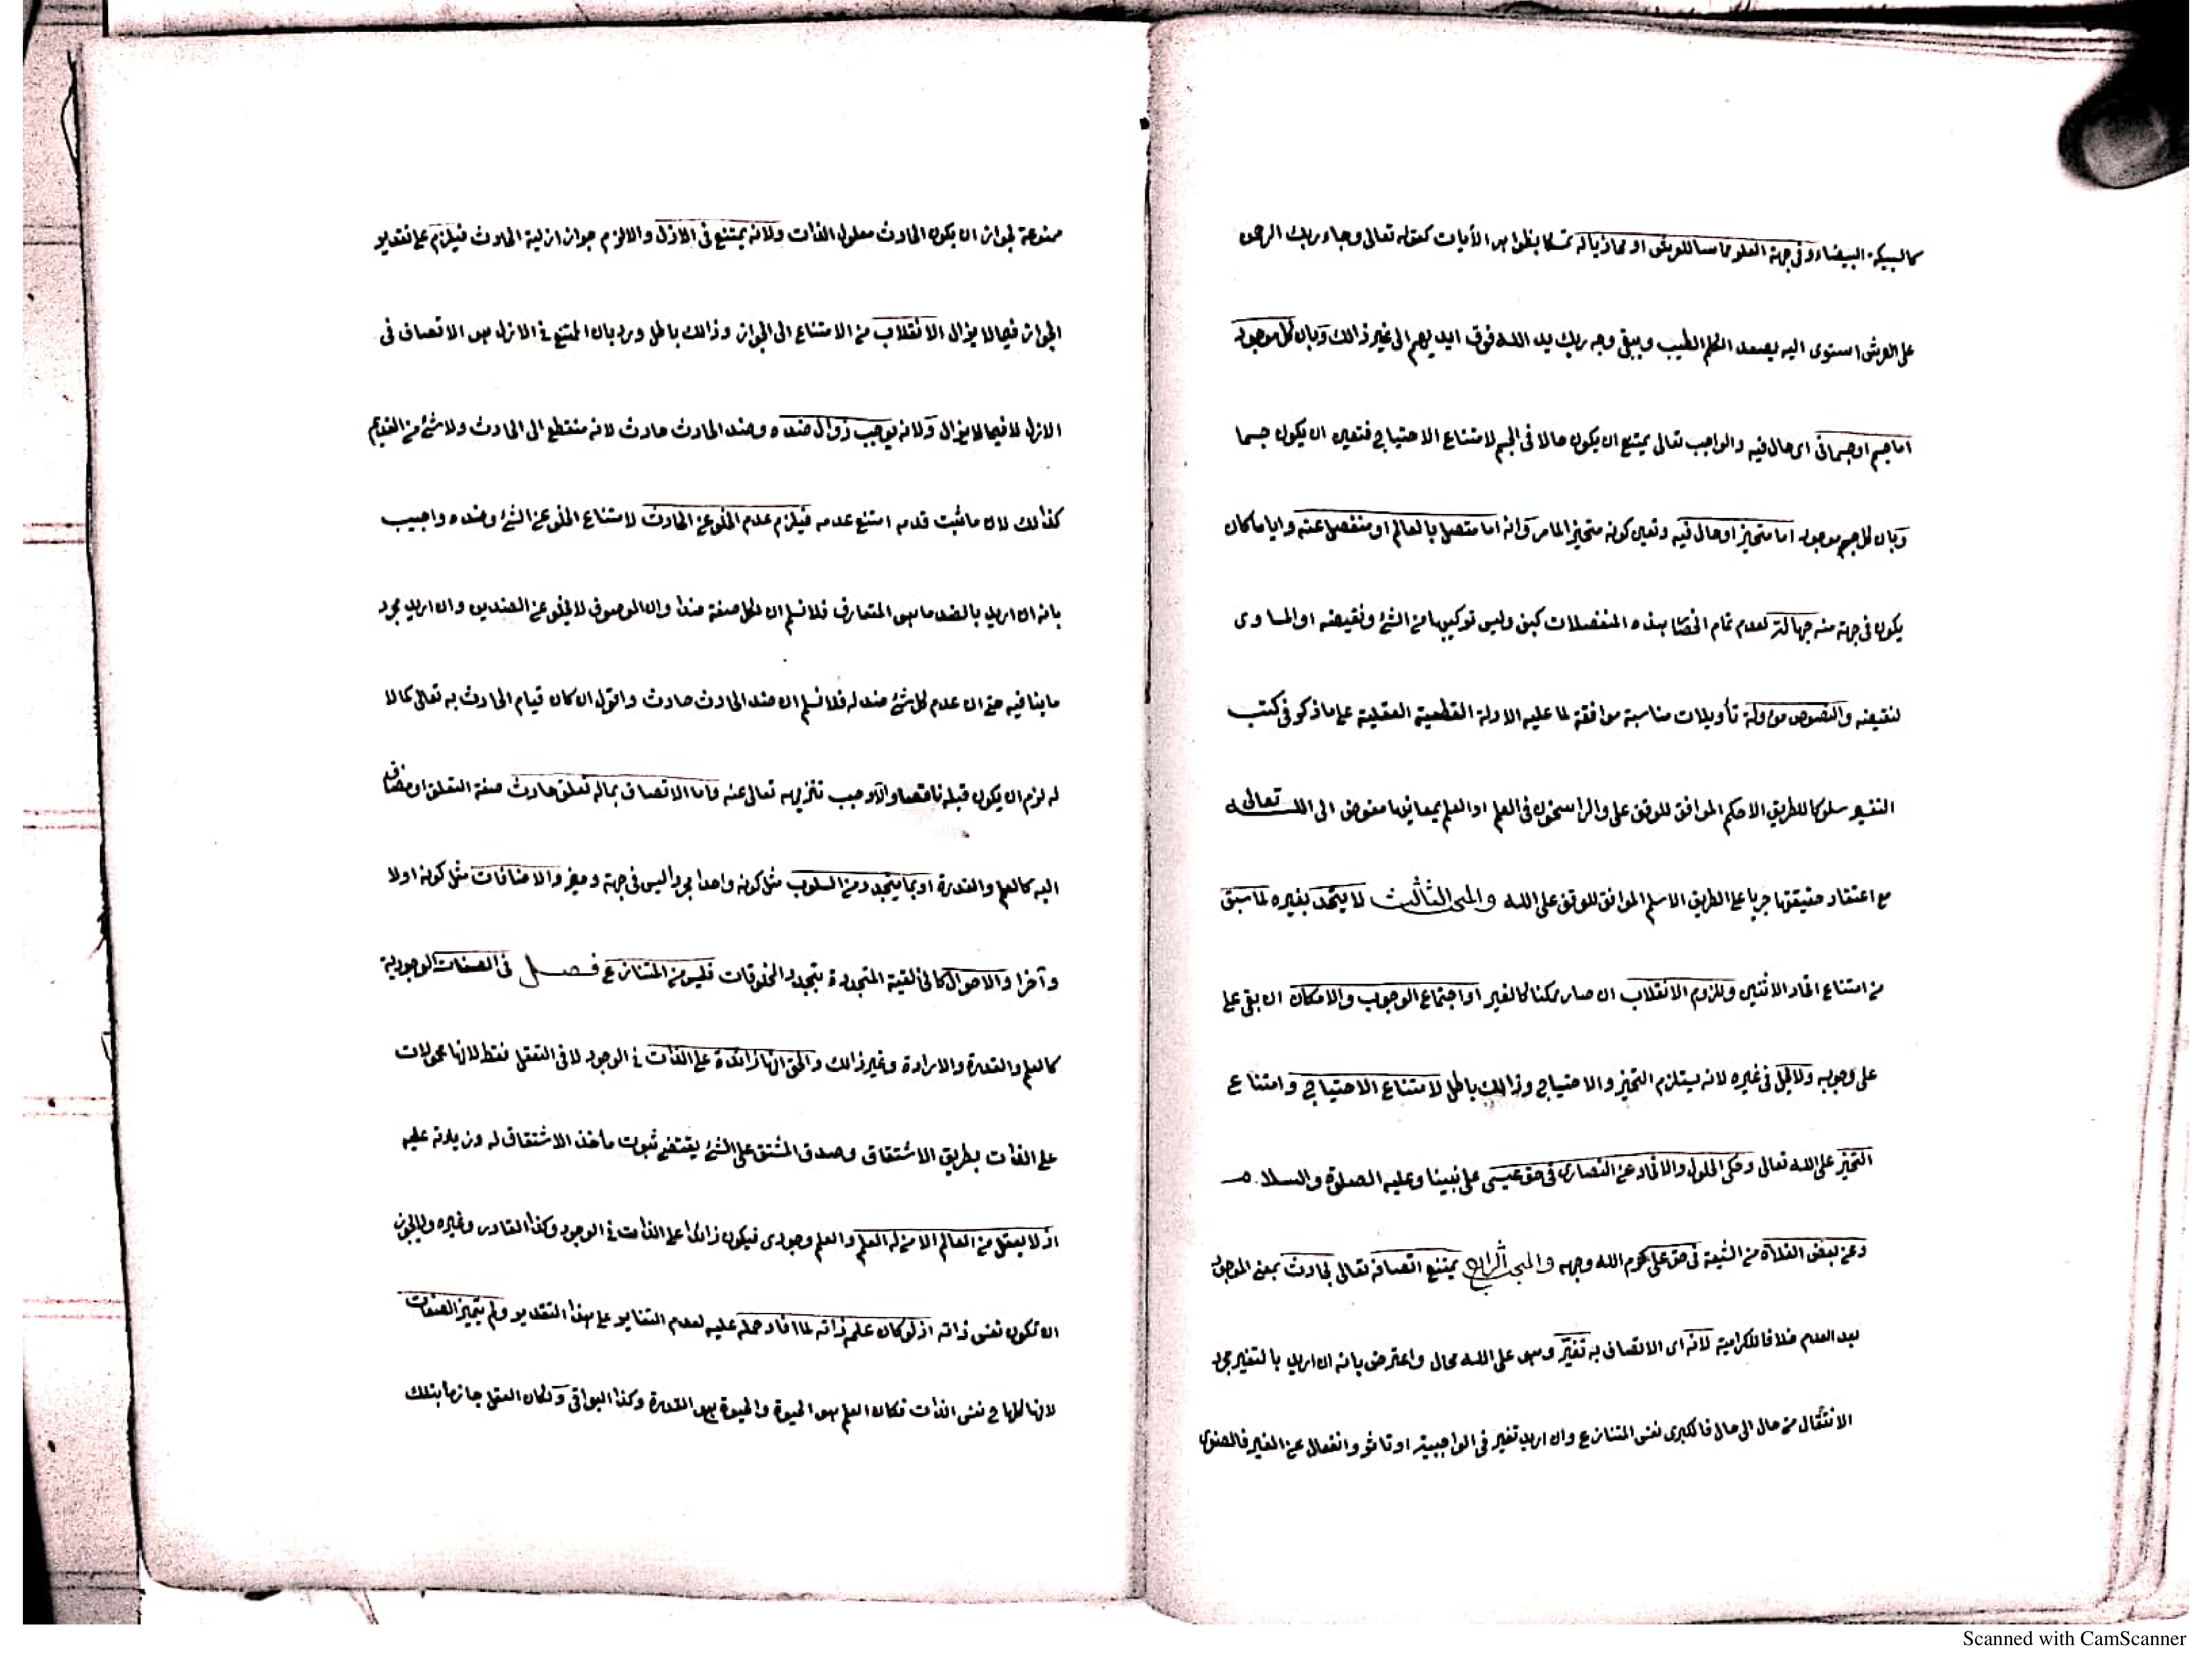 كالسبيكة البيضاء وفى جهة العلو مماسا للعرش او محاذيا له تمسكا بظواهر الأيات كقوله تعالى وجاء ربك الرحمن
على العرش استوى اليه يصعد الكلم الطيب ويبقى وجه ربك يد الله فوق ايديهم الى غير ذالك وبان كل موجود
اما جسم او جسمانى اى حال فيه والواجب تعالى يمتنع ان يكون حالا فى الجسم لامتناع الاحتياج فتعين ان يكون جسما
وبان كل موجود اما متحيز او حال فيه وتعين كونه متحيزا لما مر وانه اما متصل بالعالم او منفصل عنه وايا ما كان
يكون فى جهة منه جهالة لعدم تمام هذه المنفصلات كيف وليس تركيبها من الشئ ونقيضه او المساوى
لنقيضه والنصوص مؤولة تأويلات مناسبة موافقة لما عليه الادلة القطعية العقلية على ما ذكر فى كتب
التفسير سلوكا للطريق الاحكم الموافق للوقف على والراسخون فى العلم او العلم بمعانيها مفوض الى الله تعالى
مع اعتقاد حقيقتها جريا على الطريق الاسلم الموافق للوقف على الله والمبحث الثالث لا يتحد بغيره لما سبق
من امتناع اتحاد الاثنين وللزوم الانقلاب ان صار ممكنا كالغير او اجتماع الوجوب والامكان ان بقى على
على وجوبه ولا يحل فى غيره لانه يستلزم التحيز والاحتياج وذالك باطل لامتناع الاحتياج وامتناع
التحيز على الله تعالى وحكى الحلول والاتحاد عن النصارى فى حق عيسى على نبينا وعليه الصلوة والسلام
وعن بعض الغلاة من الشيعة فى حق على كرم الله وجهه والمبحث الرابع يمتنع اتصافه تعالى بحادث بمعنى الموجود
بعد العدم خلافا للكرامية لانه اى الاتصاف به تغيّر وهو على الله محال واعترض بانه ان اريد بالتغير مجرد
الانتقال من حال الى حال فالكبرى نفس المتنازع وان اريد تغير فى الواجبية او تاثر وانفعال عن الغير فالصغرى
ممنوعة لجواز ان يكون الحادث معلول الذات ولانه يمتنع فى الازل والا لزم جواز ازلية الحادث فيلزم على تقدير
الجواز فيما لا يزال الانقلاب من الامتناع الى الجواز وذالك باطل ورد بان الممتنع فى الازل هو الاتصاف فى
الازل لا فيما لا يزال ولانه يوجب زوال ضده وضد الحادث حادث لانه منقطع الى الحادث ولا شئ من القديم
كذالك لان ما ثبت قدمه امتنع عدمه فيلزم عدم الخلو عن الحادث لامتناع الخلو عن الشئ وضده واجيب
بانه ان اريد بالضد ما هو المتعارف فلا نسلم ان لكل صفة ضدا وان الموصوف لا يخلو عن الضدين وان اريد مجرد
ما ينافيه حتى ان عدم كل شئ ضد له فلا نسلم ان ضد الحادث حادث واقول ان كان قيام الحادث به تعالى كمالا
له لزم ان يكون قبله ناقصا والا وجب تنزيهه تعالى عنه واما الاتصاف بماله تعلق حادث صفة التعلق او مضاف
اليه كالعلم والقدرة او بما يتجدد من السلوب مثل كونه واحدا مجردا ليس فى جهة وحيز والاضافات مثل كونه اولا
وآخرا والاحوال كالخالقية المتجددة بتجدد المخلوقات فليس من المتنازع فصل فى الصفات الوجودية
كالعلم والقدرة والارادة وغير ذالك والحق انها زائدة على الذات فى الوجود لا فى التعقل فقط لانها محمولات
على الذات بطريق الاشتقاق وصدق المشتق على الشئ يقتضى ثبوت مأخذ الاشتقاق له وزيادته عليه
اذ لا يعقل من العالم الا من له العلم والعلم وجودى فيكون زائدا على الذات فى الوجود وكذا القادر وغيره ولا يجوز
ان تكون نفس ذاته اذ لو كان علمه ذاته لما افاد حمله عليه لعدم التغاير على هذا التقدير ولم يتميز الصفات
لانها كلها ح نفس الذات فكان العلم هو الحيوة والحيوة هو القدرة وكذا البواقى ولكان العقل جازما بتلك
Scanned with CamScanner